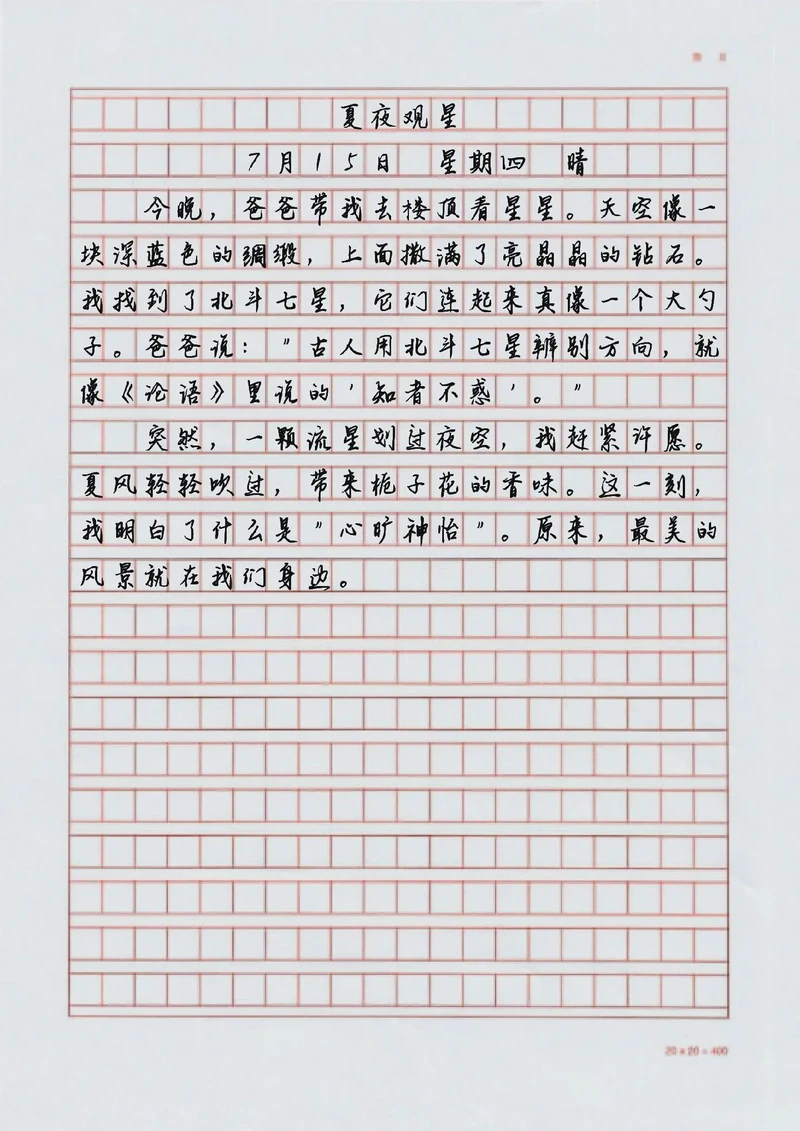 夏夜观星
7月15日 星期四 晴
今晚，爸爸带我去楼顶看星星。天空像一
块深蓝色的绸缎，上面撒满了亮晶晶的钻石。
我找到了北斗七星，它们连起来真像一个大勺
子。爸爸说："古人用北斗七星辨别方向，就
像《论语》里说的'知者不惑'。"
突然，一颗流星划过夜空，我赶紧许愿。
夏风轻轻吹过，带来栀子花的香味。这一刻，
我明白了什么是"心旷神怡"。原来，最美的
风景就在我们身边。
20×20=400